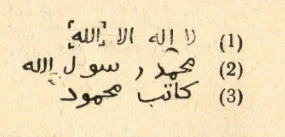 (1) لا إله الا الله
(2) محمد رسول الله
(3) كاتب محمود